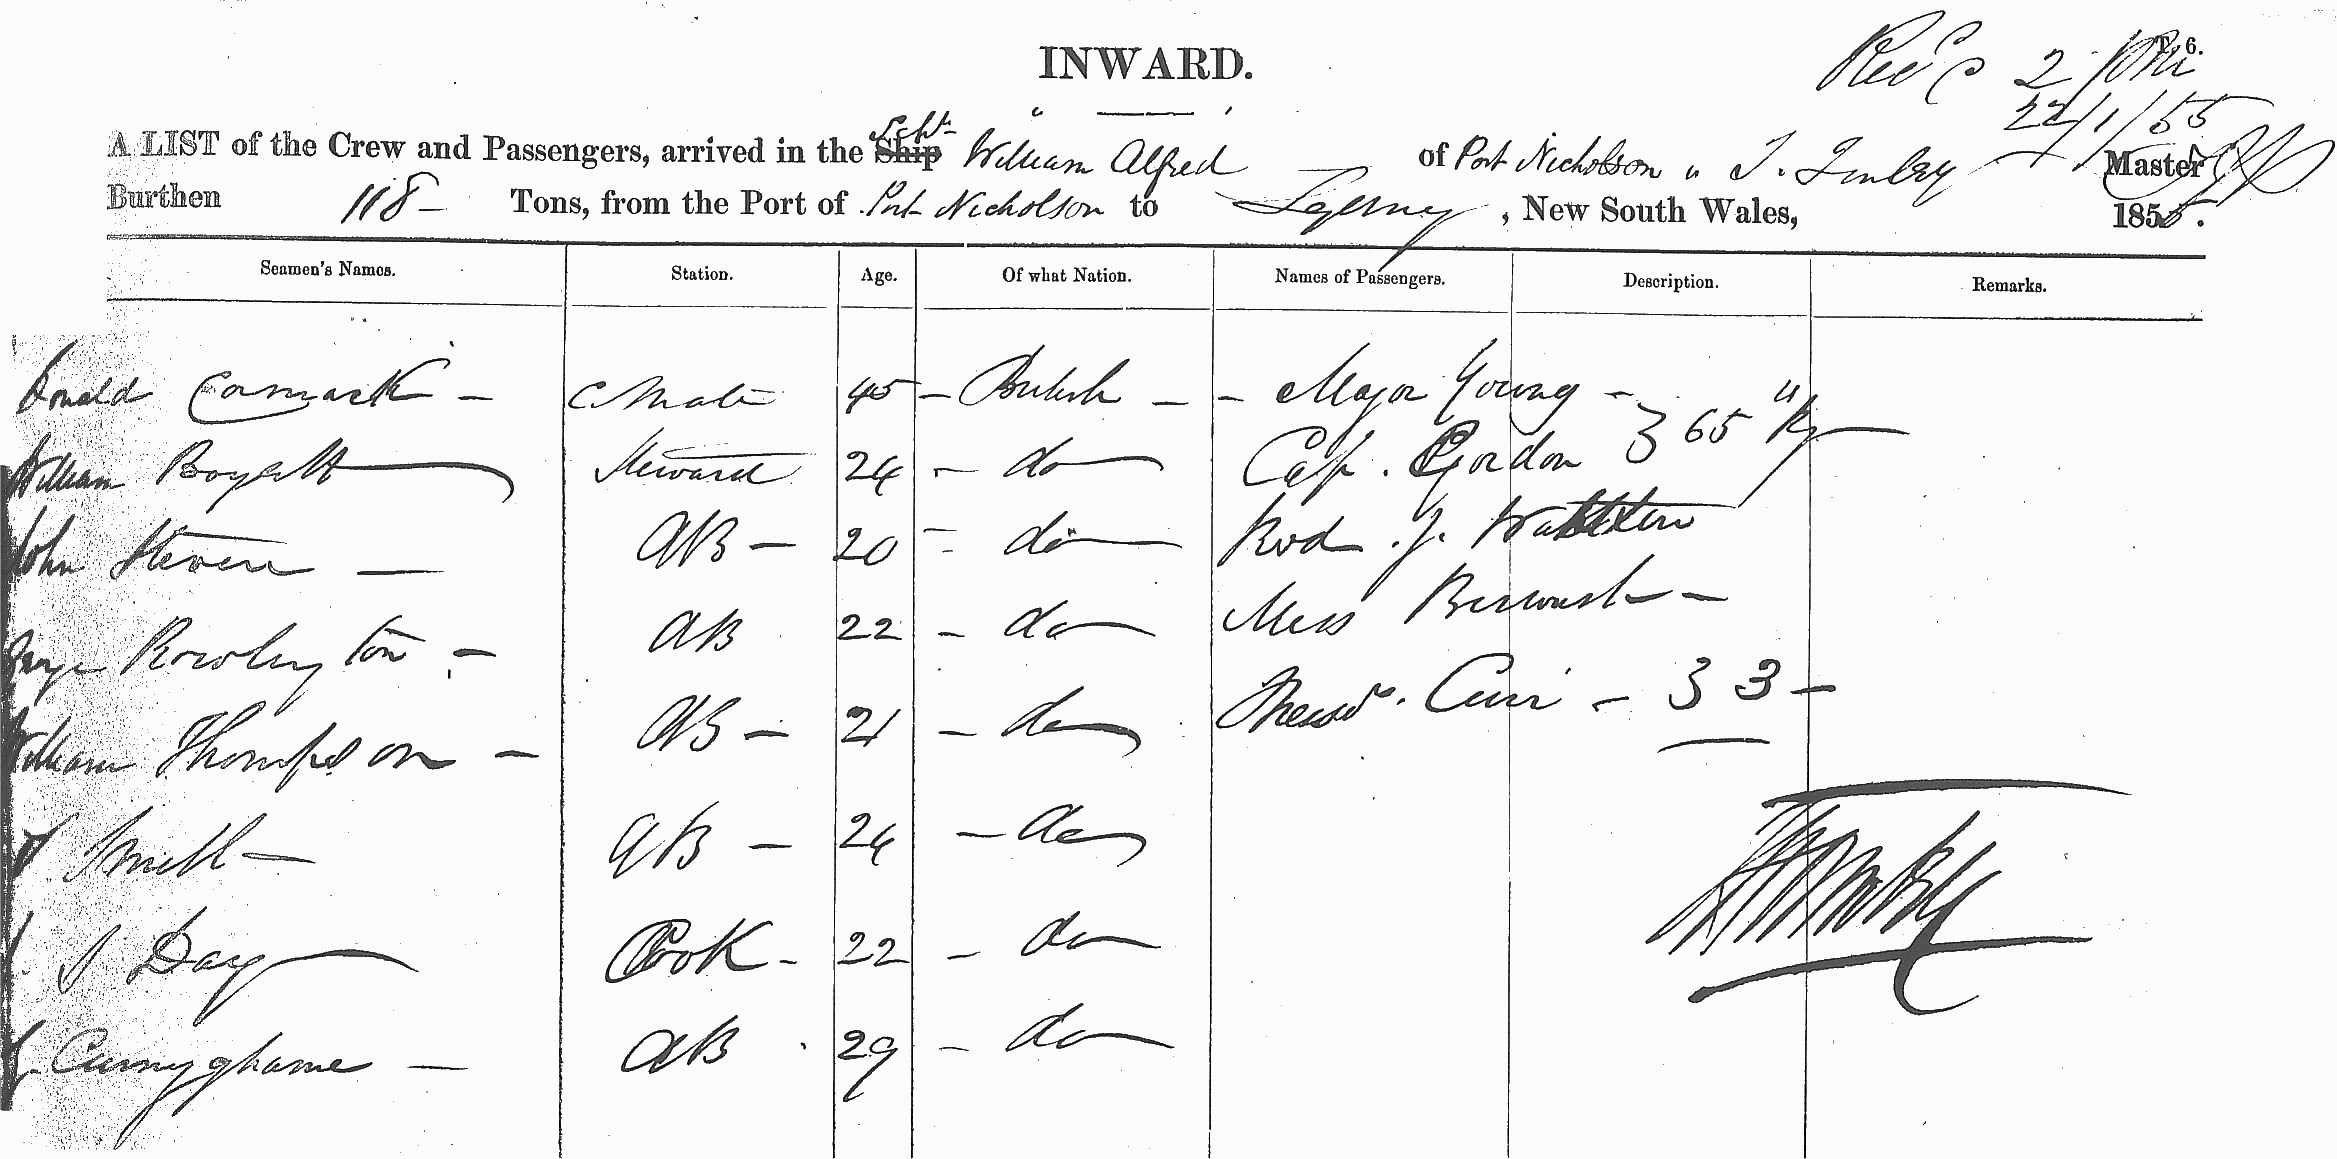 INWARD.
T. 6.
Rec'd 2 PM
22/1/55
A LIST of the Crew and Passengers, arrived in the Ship Schr William Alfred of Port Nicholson " J. Tinley Master
Burthen 118 - Tons, from the Port of Port Nicholson to Sydney, New South Wales, 1855.
Seamen's Names. Station. Age. Of what Nation. Names of Passengers. Description. Remarks.
Donald Cormack - C Mate 45 - British - - Major Young -
William Steward 24 - do Cap. Gordon 65th Rg
John Steven - AB - 20 - do Rod. J.
George Rowlington - AB 22 - do Miss
William Thompson - AB - 21 - do - 3 3 -
Smith - AB - 24 - do
J Day Cook - 22 - do
Cunnyghame - AB 29 - do